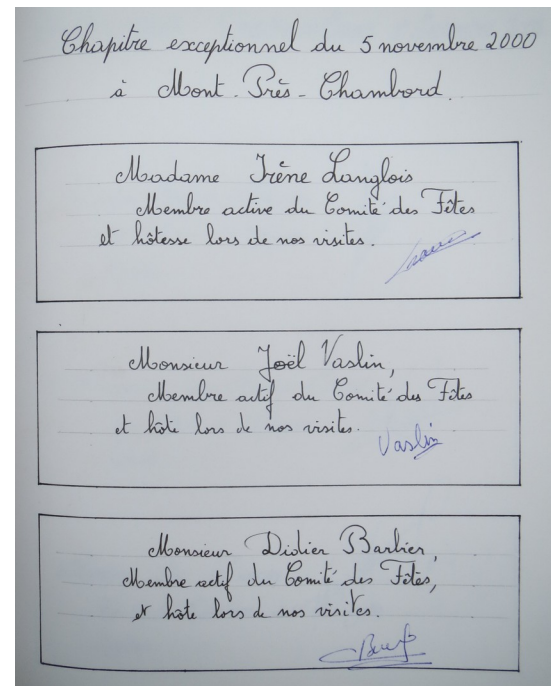 Chapitre exceptionnel du 5 novembre 2000
à Mont-Près-Chambord.
Madame Irène Langlois
Membre active du Comité des Fêtes
et hôtesse lors de nos visites.
Monsieur Joël Vaslin,
Membre actif du Comité des Fêtes
et hôte lors de nos visites.
Vaslin
Monsieur Didier Barbier,
Membre actif du Comité des Fêtes,
et hôte lors de nos visites.